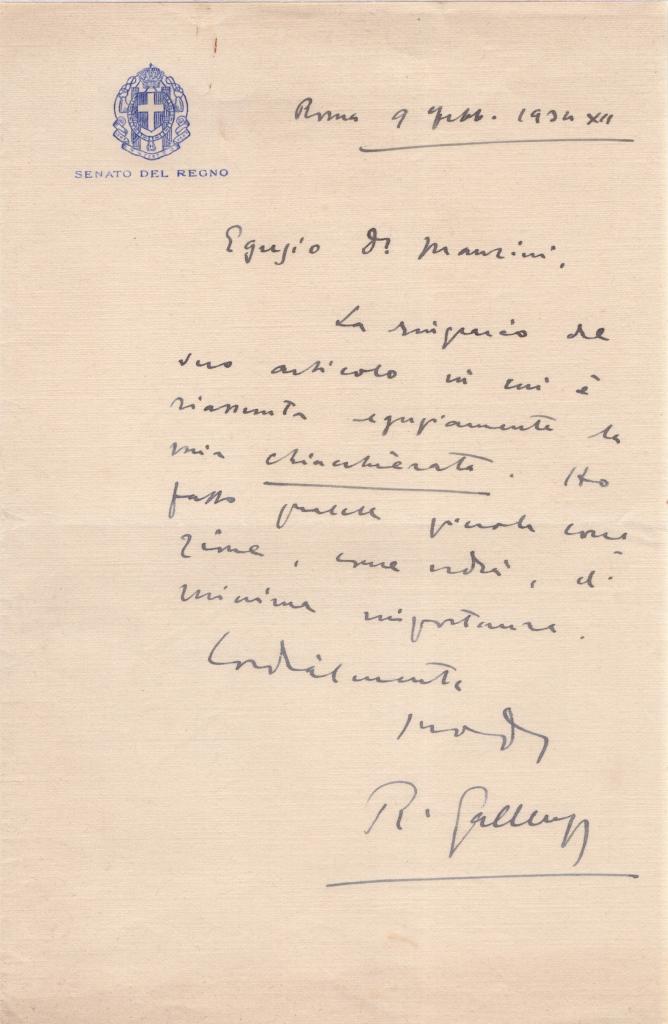 SENATO DEL REGNO
Roma 9 Febb. 1934 XII
Egregio Dr Manzini,
La ringrazio del
suo articolo in cui è
riassunta egregiamente la
mia chiacchierata. Ho
fatto qualche piccola corre
zione, come vedrà, di
minima importanza.
Cordialmente
suo
R. Galleng